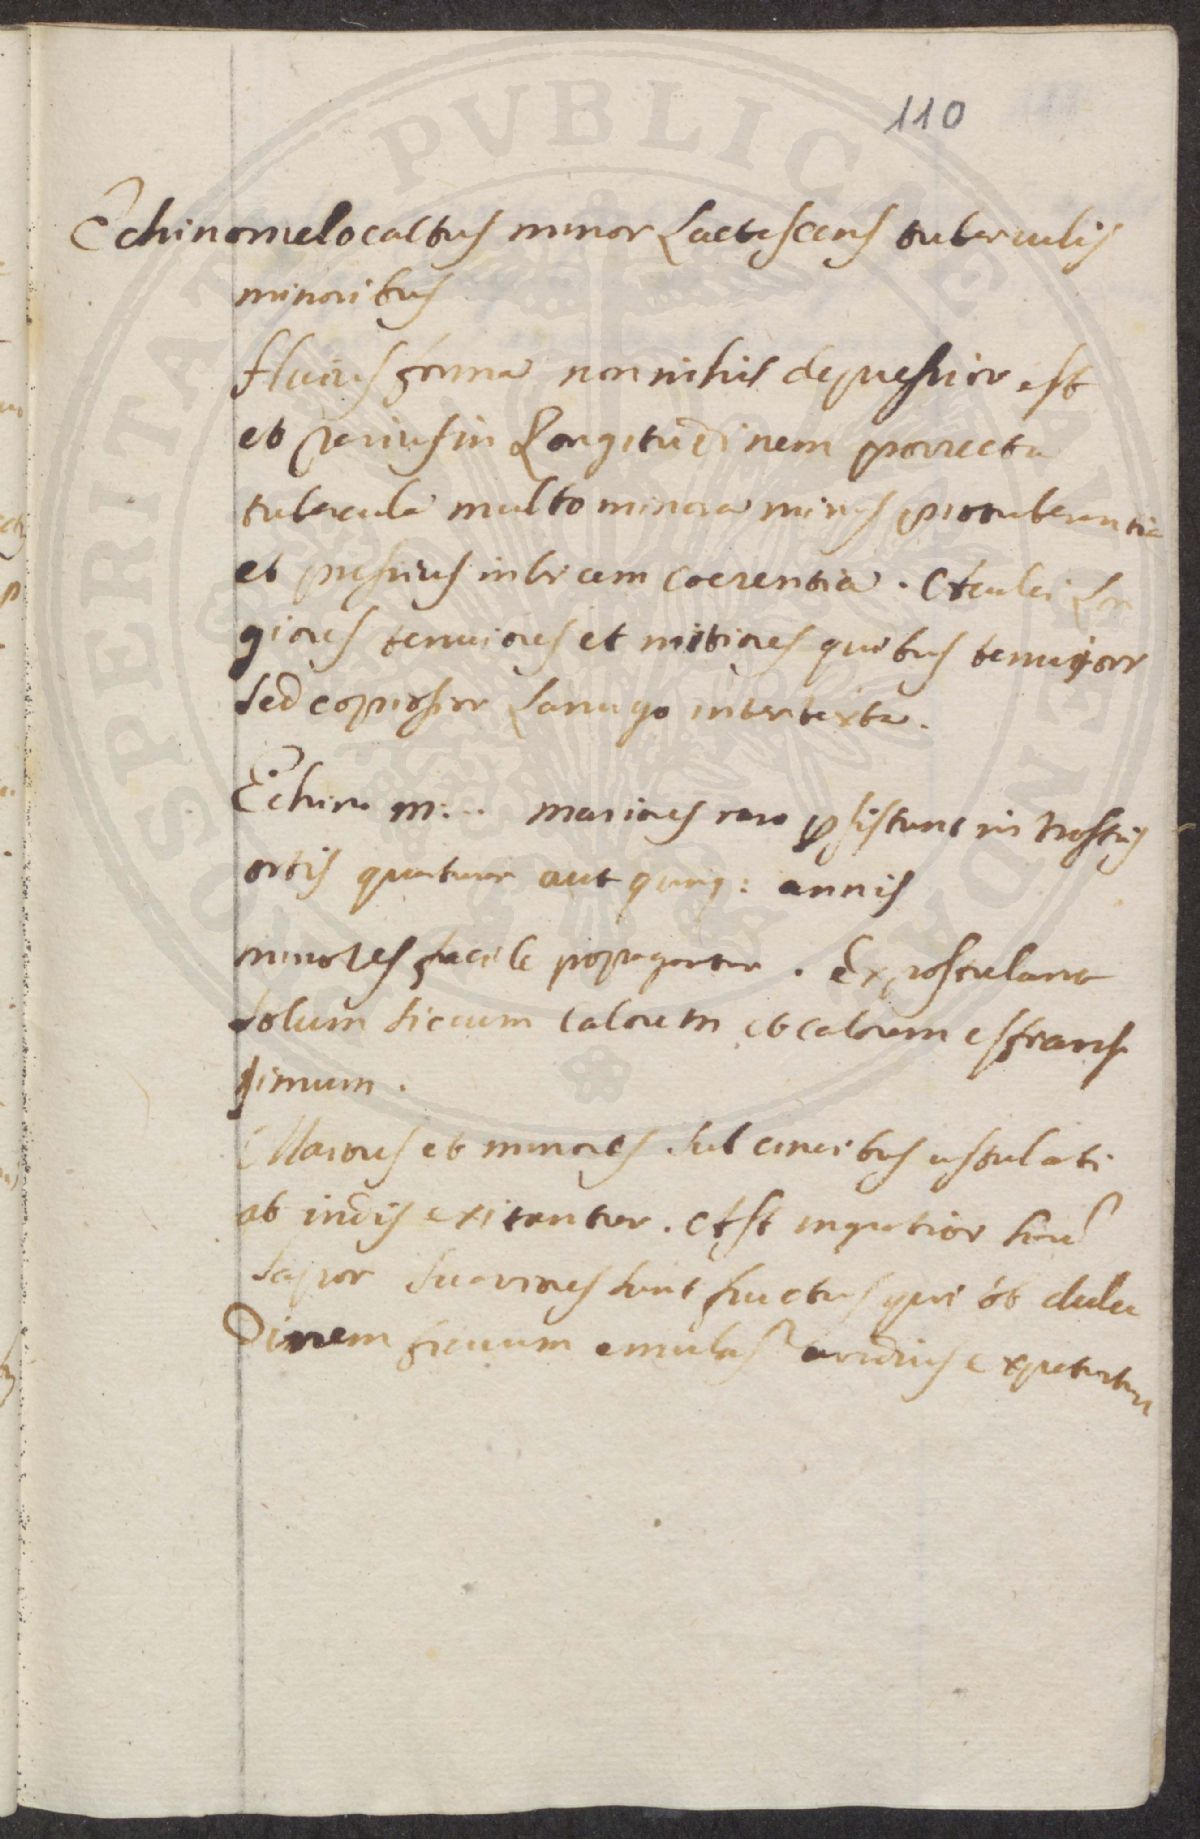 110
Echinomelocactus minor Lactescens tuberculis
minoribus
Huius forma nonnihil depressior est
et rarius in Longitudinem porrecta
tubercula multo minora minus protuberantia
et pressius invicem coerentia. Aculei Lon
giores tenuiores et mitiores quibus tenuior
sed copiosior Lanugo intertexta.
Echino m:.. maiores raro psistunt in nostris
ortis quatuor aut quinq: annis
minores facile propagantur. Expostulant
solum siccum calorem et calorem
simum.
Maiores et minores sub cineribus ustulati
ab indis exitantur. Ast ingratior
sapor suaviores sunt fructus qui ob dulce
Dinem ficuum emulas avidius expetuntur